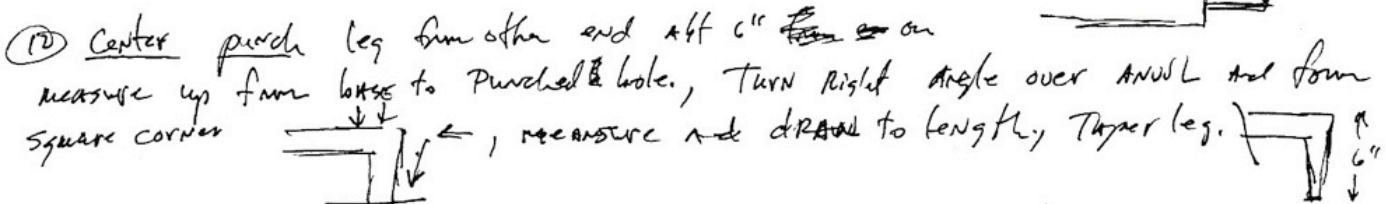 ⑫ Center punch leg from other end Aft 6" on
measure up from base to Punched hole., Turn Right Angle over ANVIL And form
square corner , meansure And dRAW to length, Taper leg.
6"